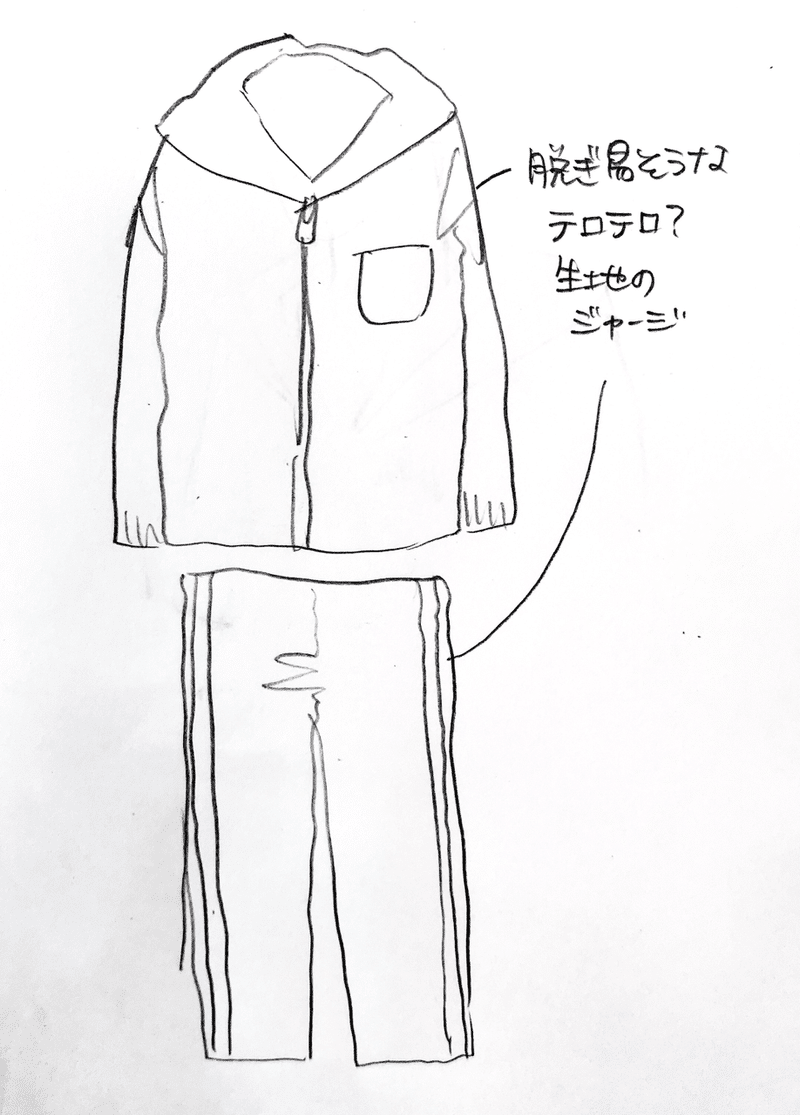 脱ぎ易そうな
テロテロ?
生地の
ジャージ